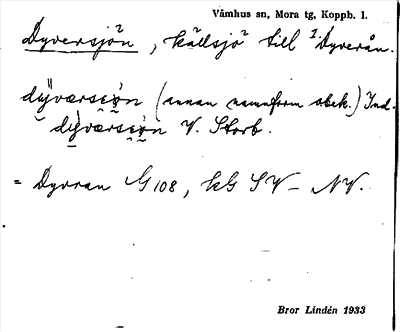 Våmhus sn, Mora tg, Koppb. l.
Dyversjön, källsjö till 1. Dyverån.
(annan namnform obek.) Ind.
V. Storb.
= Dyvran G 108, kG SV - NV.
Bror Lindén 1933